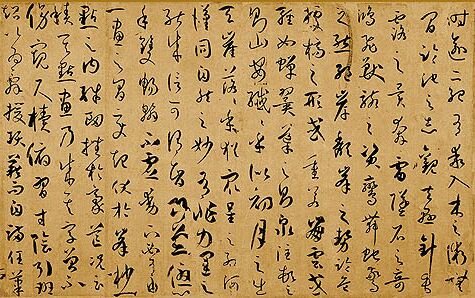 時逾二紀有乖入木之術無
間臨池之志觀夫懸針垂
露之異奔雷墜石之奇
鴻飛獸駭之資鸞舞蛇驚
之態絕岸頹峯之勢臨危
據槁之形或重若崩雲或
輕如蟬翼導之則泉注頓之
則山安纖纖乎似初月之出
天崖落落乎猶眾星之列河
漢同自然之妙有非力運之
能成信可謂智巧兼優心
手雙暢翰不虛動下必有由
一畫之間變起伏於峯杪一
點之內殊衄挫於豪芒況云
積其點畫乃成其字曾不
傍窺尺牘俯習寸陰引班
超以為辭援項籍而自滿任筆